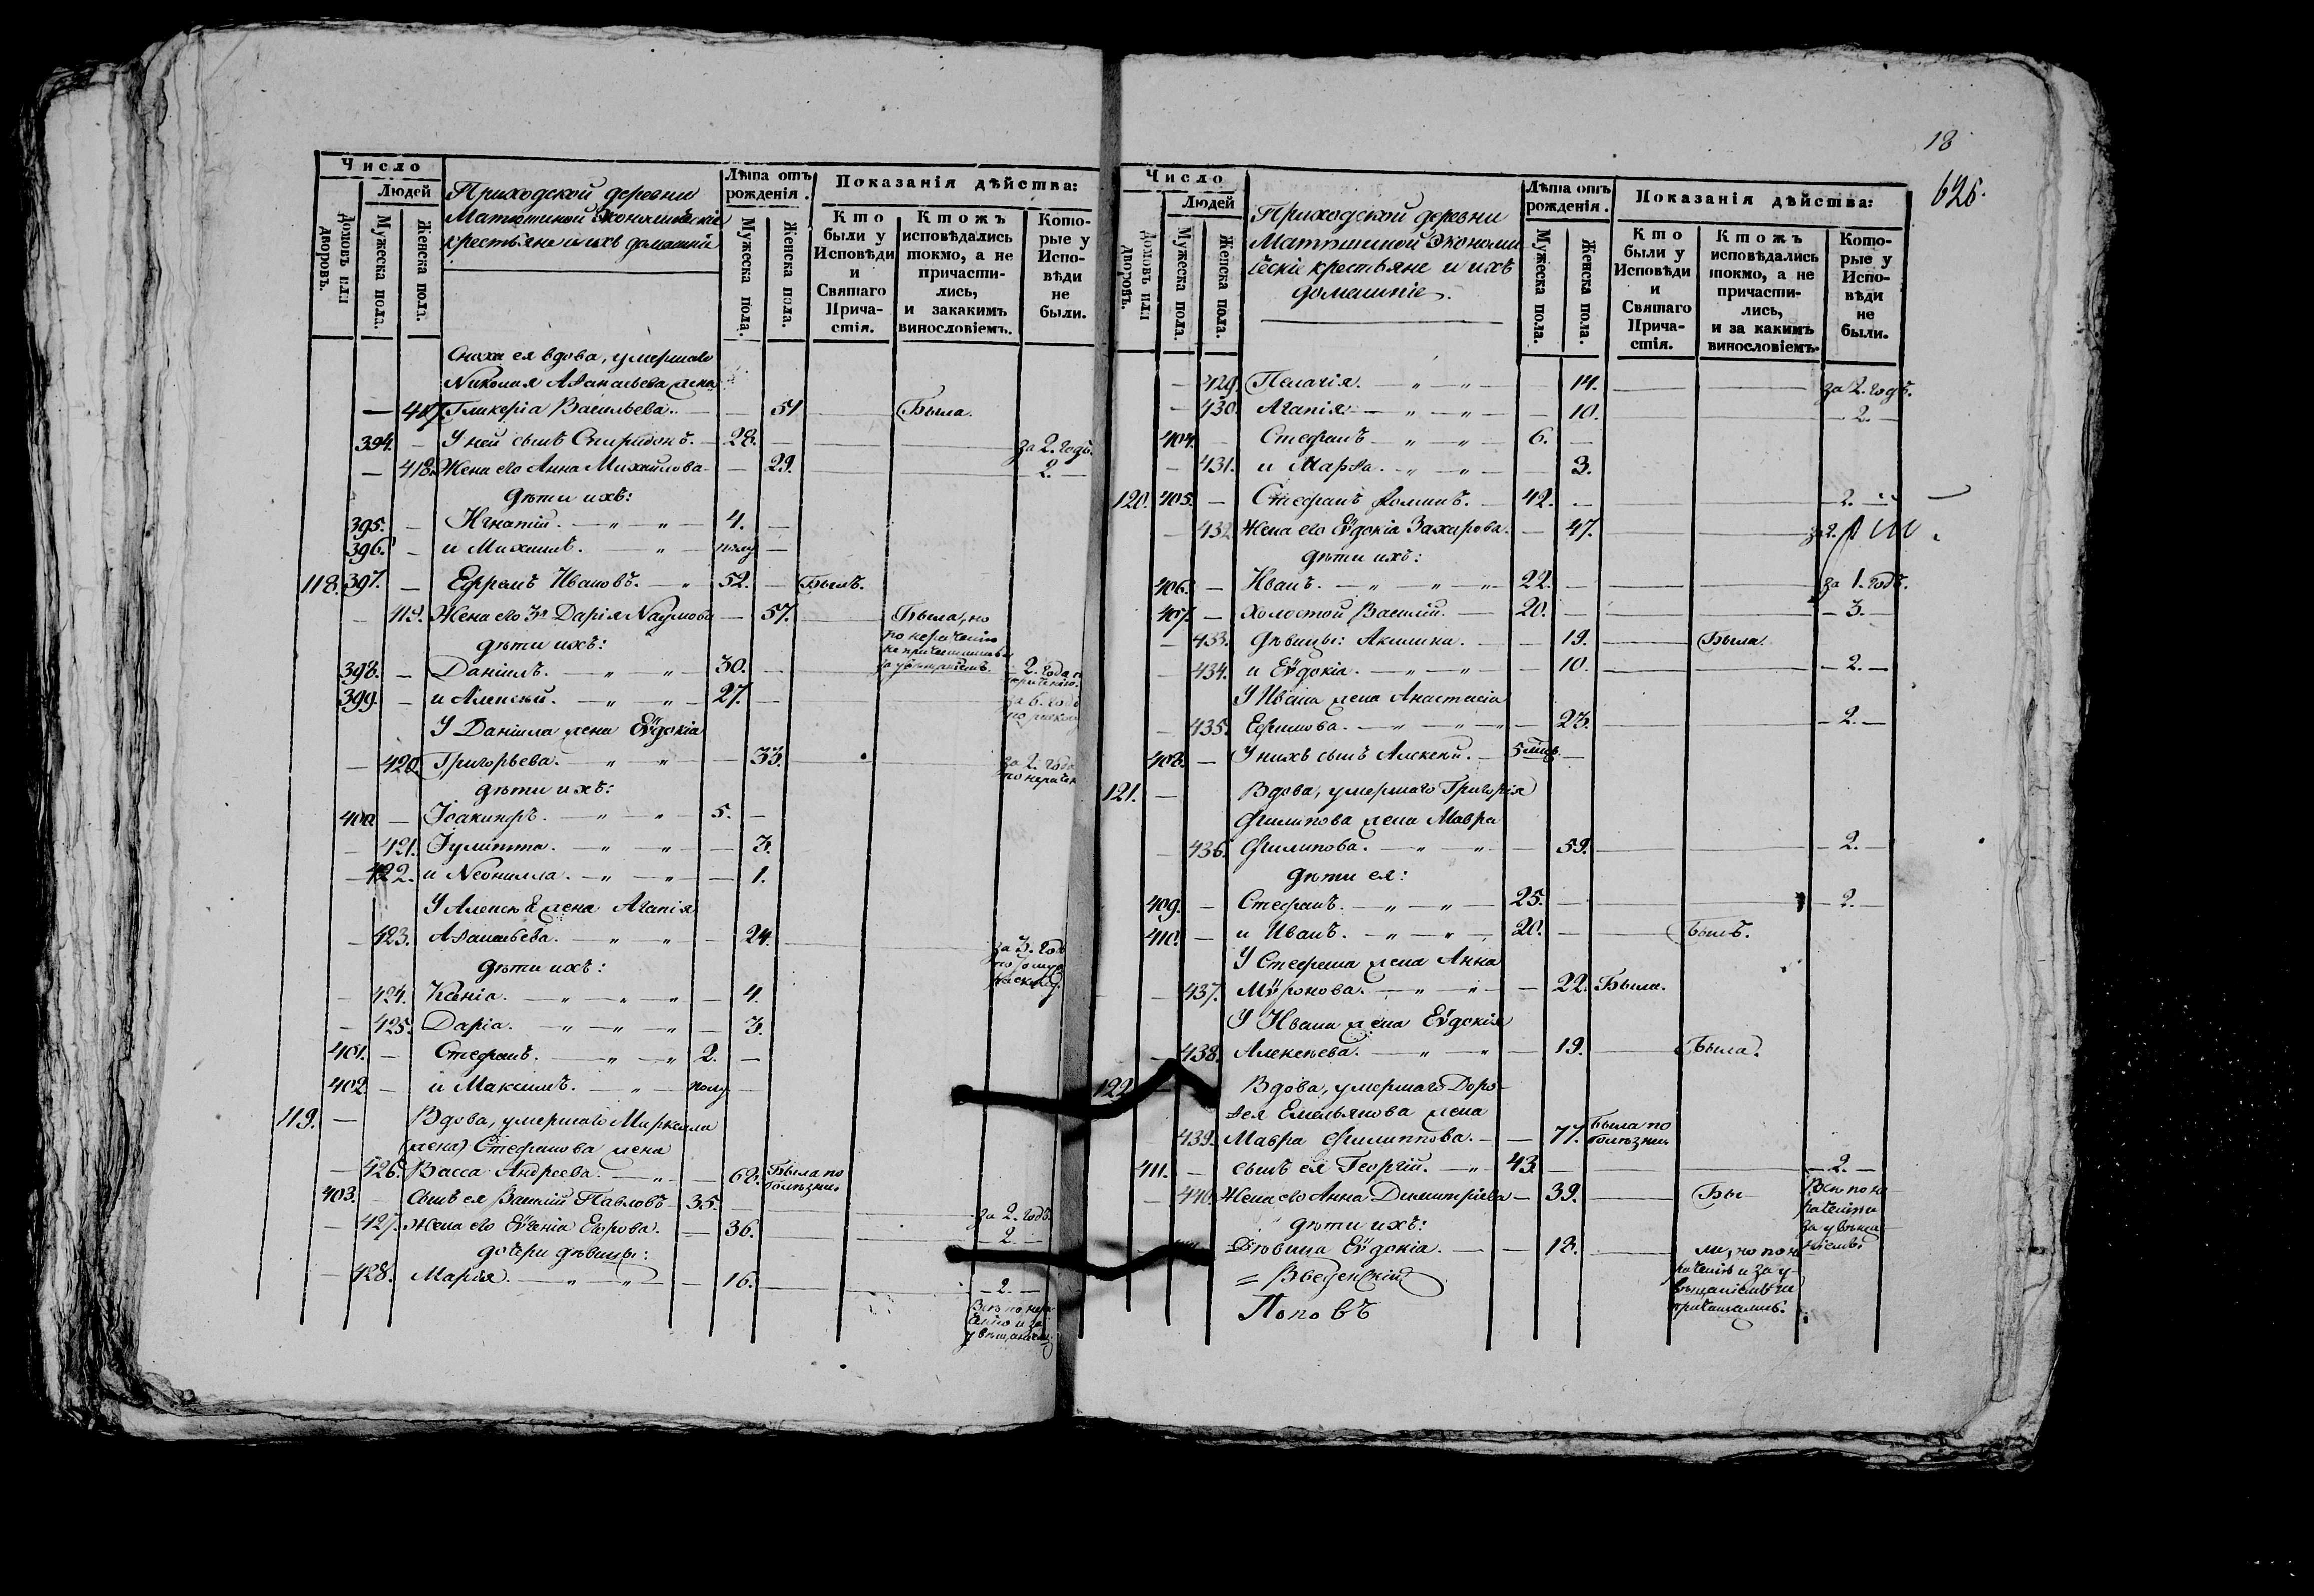 Число
Людей
домовъ или дворовъ.
Мужеска пола.
Женска пола.
Приходской деревни
Матюшиной Экономическіе
крестьяне и ихъ домашніе
Лѣта отъ рожденія.
Мужеска пола.
Женска пола.
Показанія дѣйства:
Кто были у Исповѣди и Святаго Причастія.
Ктожъ исповѣдались токмо, а не причастились, и закакимъ винословіемъ.
Которые у Исповѣди не были.
Сноха ея вдова, умершаго
Николая Аѳанасьева жена
— 417. Гликеріа Васильева. — — 51 — Была.
394. — У ней сынъ Спиридонъ. — 28. — за 2. годъ.
— 418. Жена его Анна Михайлова — — 29. — 2. —
дѣти ихъ:
395. — Игнатій. — „ — „ — 4. —
396. — и Михаилъ. — „ — полу —
118. 397. — Ефремъ Ивановъ. — „ 52. — Былъ.
— 419. Жена его 3я Дарія Наумова — 57. — Была, но
по нераченію
не причастилась
за увѣщаніемъ.
дѣти ихъ:
398. — Даніилъ. — „ — „ 30. — 2. года
399. — и Алексѣй. — „ — „ — 27. — за 6. годъ
У Даніила жена Еѵдокіа
— 420. Григорьева. — „ — „ — 33. — за 2. года
дѣти ихъ:
400 — Іоакинфъ. — „ — „ 5. —
— 421. Іулитта. — „ — „ — 3.
— 422. и Неонилла. — „ — „ — 1.
У Алексѣя жена Агапія
— 423. Аѳанасьева. — „ — „ — 24. — за 3. год
дѣти ихъ:
— 424. Ксеніа. — „ — „ — „ — 4.
— 425. Даріа. — „ — „ — „ — 3.
401. — Стефанъ. — „ — „ 2. —
402 — и Максимъ. — „ — полу —
119. — Вдова, умершаго Маркелла
(жена) Стефанова жена
— 426. Васса Андреева. — „ — 68. Была по
болѣзни
403. — Сынъ ея Василій Павловъ — 35. — за 2. годъ.
— 427. Жена его Еѵгеніа Егорова. — 36. — 2. —
дочери дѣвицы:
— 428. Марія — „ — „ — 16. — 2. —
Всѣ по нера-
ченію и за
увѣщаніемъ
18
625.
Число
Людей
домовъ или дворовъ.
Мужеска пола.
Женска пола.
Приходской деревни
Матюшиной Экономи
ческіе крестьяне и ихъ
домашніе.
Лѣта отъ рожденія.
Мужеска пола.
Женска пола.
Показанія дѣйства:
Кто были у Исповѣди и Святаго Причастія.
Ктожъ исповѣдались токмо, а не причастились, и за какимъ винословіемъ.
Которые у Исповѣди не были.
— 429. Пелагія. — „ — „ — 14. — за 2. годъ.
— 430. Агапія. — „ — „ — 10. — 2. —
404. — Стефанъ — „ — „ — 6. —
— 431. и Марѳа. — „ — „ — 3.
120. 405. — Стефанъ Фоминъ. — 42. — 2. —
— 432 Жена его Еѵдокіа Захарова. — 47. — за 2.
дѣти ихъ:
406. — Иванъ. — „ — „ — „ 22. — за 1. годъ.
407. — холостой Василій. — 20. — 3.
— 433. дѣвицы: Акилина. — 19. — Была.
— 434. и Еѵдокіа. — „ — „ — 10. — 2. —
У Ивана жена Анастасіа
— 435. Ефимова. — „ — „ — 23. — 2. —
408. — У нихъ сынъ Алексѣй. — 5 мѣсц. —
121. — Вдова, умершаго Григорія
Филипова жена Мавра
— 436. Филипова. — „ — „ — 59. — 2. —
дѣти ея:
409. — Стефанъ. — „ — „ — 25. — 2. —
410. — и Иванъ. — „ — „ — 20. — Былъ.
У Стефана жена Анна
— 437. Мѵронова. — „ — „ — 22. Была.
У Ивана жена Еѵдокія
— 438. Алексѣева. — „ — „ — 19. — Была.
122 Вдова, умершаго Доро-
ѳея Емельянова жена
439. Мавра Филиппова. — — 77. Была по
болѣзни
411. — сынъ ея Георгій. — „ 43. — 2. —
— 440. Жена его Анна Димитріева — 39. — Бы- Всѣ по не-
раченію
за увѣща-
ніемъ
дѣти ихъ:
Дѣвица Еѵдокіа. — — 18. — ли, но по не
раченію и за у-
вѣщаніемъ не
причащались.
= Введенскій
Поповъ